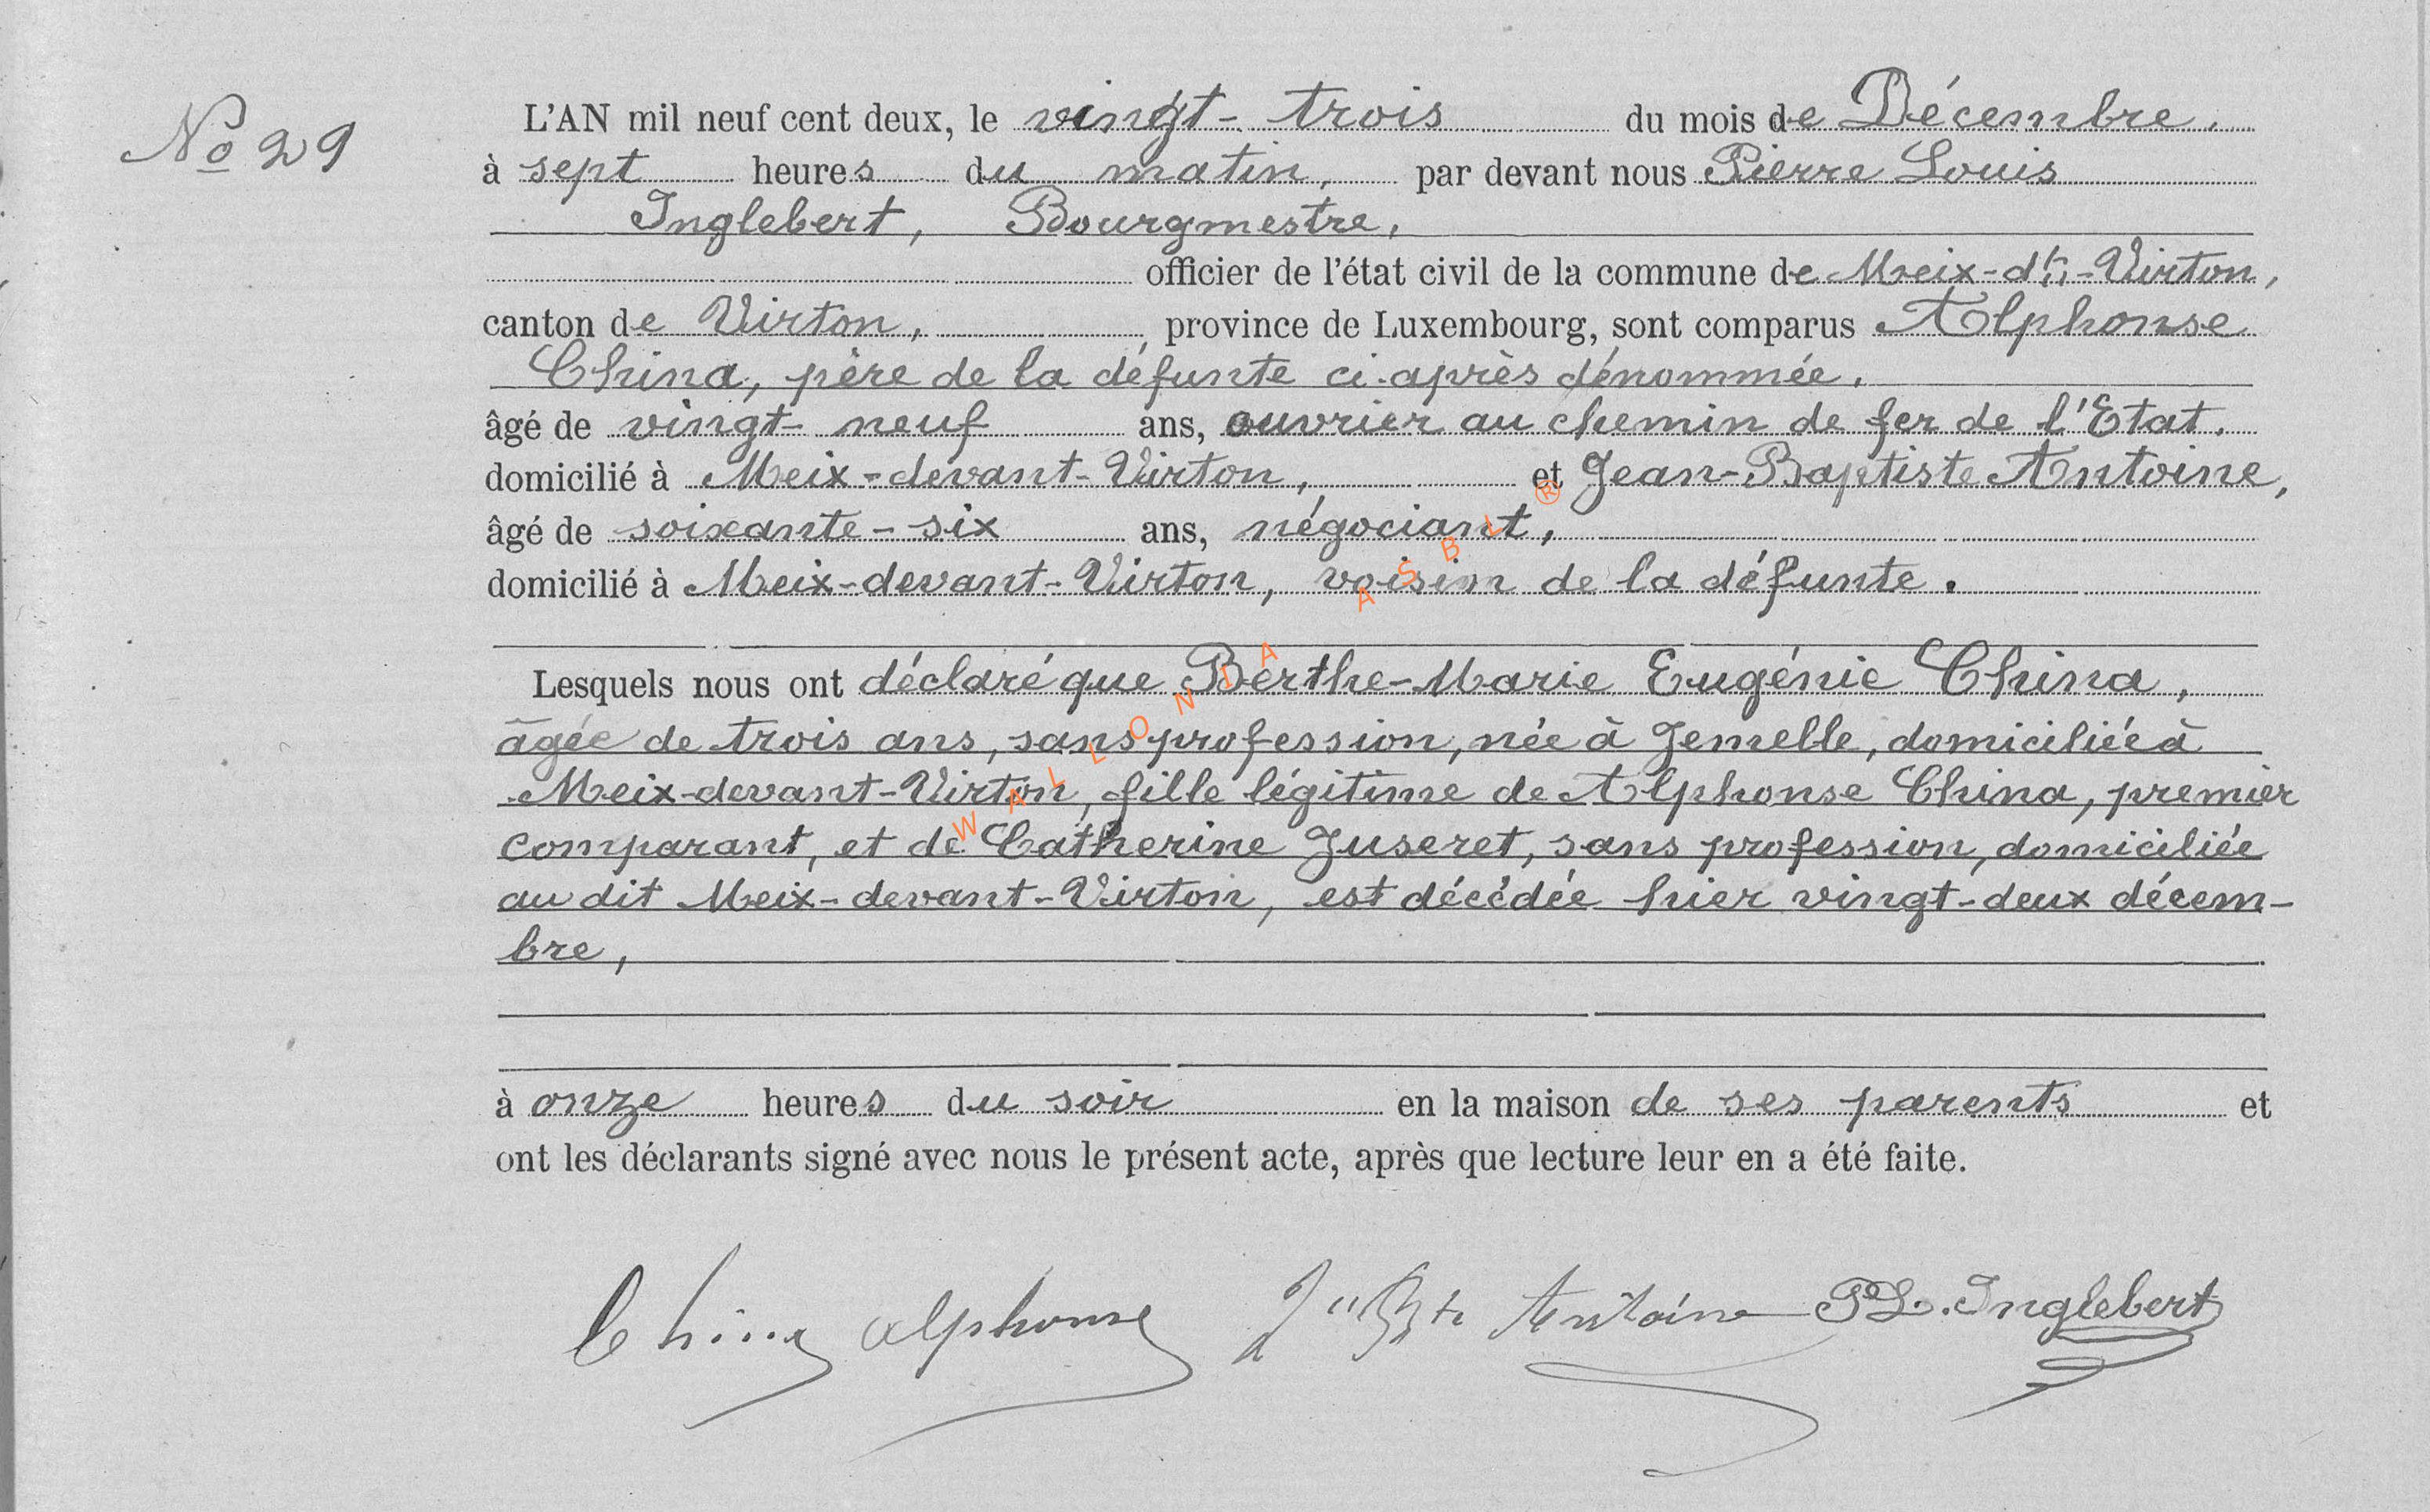 No 29
L'AN mil neuf cent deux, le vingt-trois du mois de Décembre,
à sept heures du matin, par devant nous Pierre Louis
Inglebert, Bourgmestre,
officier de l'état civil de la commune de Meix-dt-Virton,
canton de Virton, province de Luxembourg, sont comparus Alphonse
China, père de la défunte ci-après dénommée,
âgé de vingt-neuf ans, ouvrier au chemin de fer de l'Etat,
domicilié à Meix-devant-Virton, et Jean-Baptiste Antoine,
âgé de soixante-six ans, négociant,
domicilié à Meix-devant-Virton, voisin de la défunte.
Lesquels nous ont déclaré que Berthe-Marie Eugénie China,
âgée de trois ans, sans profession, née à Jemelle, domiciliée à
Meix-devant-Virton, fille légitime de Alphonse China, premier
comparant, et de Catherine Juseret, sans profession, domiciliée
au dit Meix-devant-Virton, est décédée hier vingt-deux décem-
bre,
à onze heures du soir en la maison de ses parents et
ont les déclarants signé avec nous le présent acte, après que lecture leur en a été faite.
China Alphonse Jn Bte Antoine PL. Inglebert
WALLONIA ASBL ®